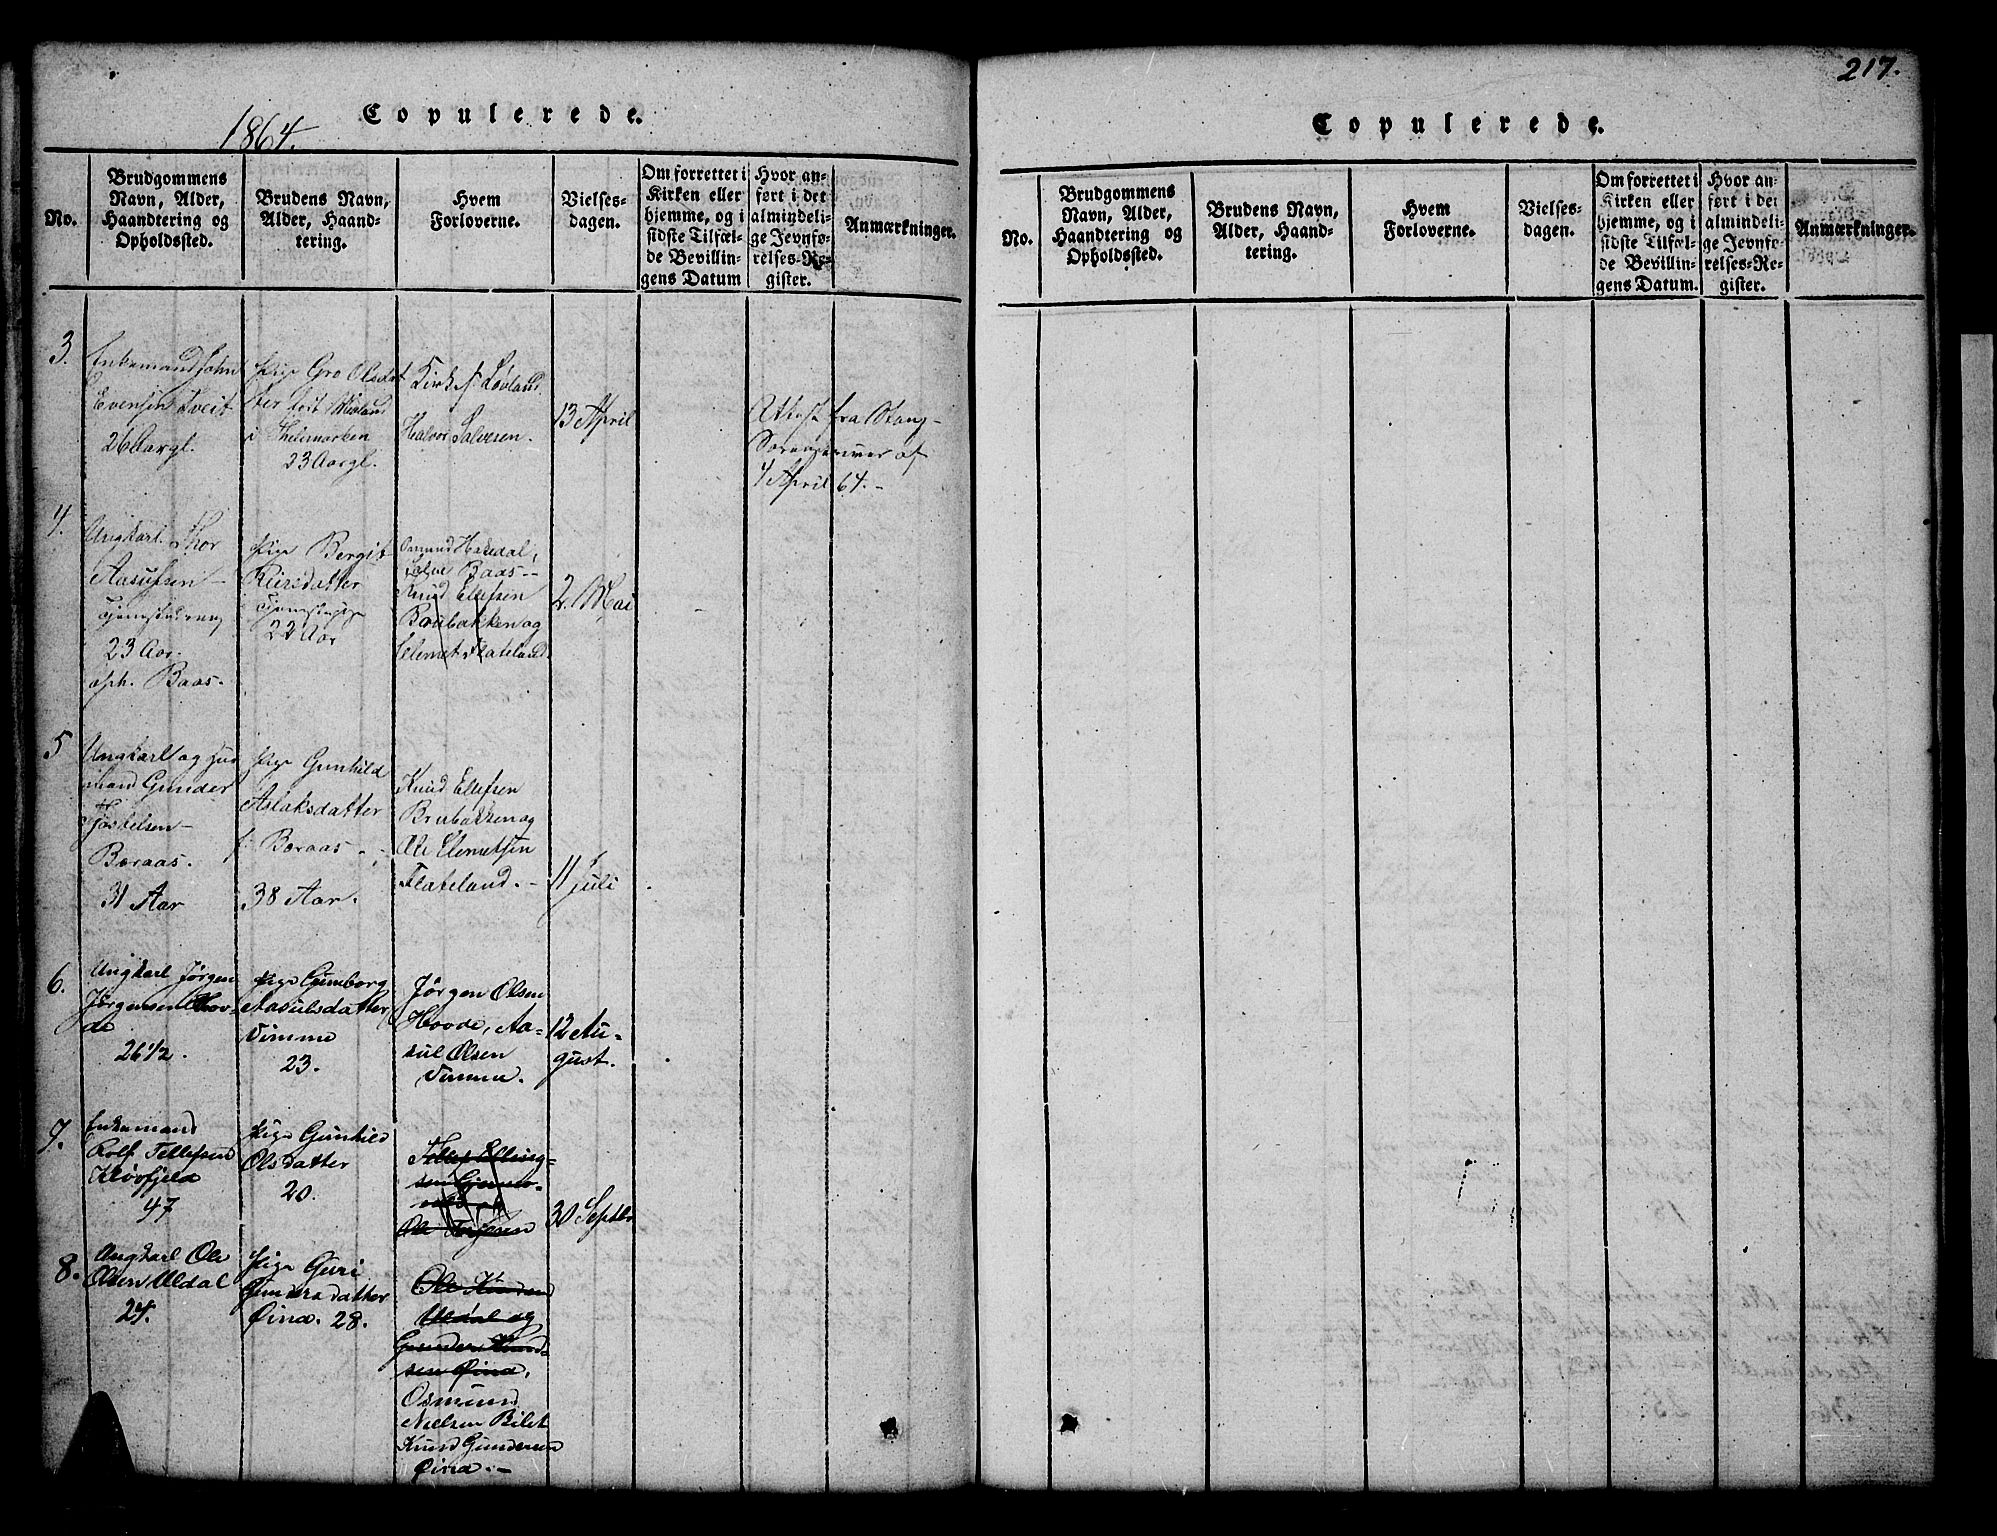 Copulerede.
1864.
No.
Brudgommens
Navn, Alder,
Haandtering og
Opholdssted.
Brudens Navn,
Alder, Haand-
tering.
Hvem
Forloverne.
Vielses-
dagen.
Om forrettet i
Kirken eller
hjemme, og i
sidste Tilfæl-
de Bevillin-
gens Datum
Hvor an-
ført i det
almindeli-
ge Jevnfø-
relses-Re-
gister.
Anmærkninger.
3.
Enkemand John
Evensen Tveit
26 Aar gl.
Pige Gro Olsdat
ter
i Thelemarken
23 Aar gl.
Kirk. s. Løvland
Halvor Salvesen.
13 April
Attest fra
af
4 April 64.-
4.
Ungkarl. Thor
Aasulfsen -
23 Aar.
oph. Baas.
Pige Bergit
Reiersdatter
22 Aar
Osmund
Baas -
Knud Ellefsen
Brubakken og
Clemet Flateland.
2. Mai
5
Ungkarl og
mand Gunder
Baraas.
31 Aar
Pige Gunhild
Aslaksdatter
Baraas -
38 Aar.
Knud Ellefsen
Brubakken og
Ole Clemetsen
Flateland. -
11 Juli
6.
Ungkarl Jørgen
Jørgensen Hov-
de
26 1/2.
Pige Gunborg
Aasulsdatter
Vimme
23.
Jørgen Olsen
Hovde, Aa-
sul Olsen
Vimme.
12 Au-
gust.
7.
Enkemand
Rolf Tellefsen
Kløvfjeld
47
Pige Gunhild
Olsdatter
20.
Tellef Elling-
sen
Ole
30 Septbr
8.
Ungkarl Ole
Olsen Uldal
24.
Pige Guri
Gundersdatter
Øina. 28.
Ole Knudsen
Uldal og
Gunder Knud-
sen Øina,
Osmund
Nielsen Birket
Knud Gundersen
Øina. -
217.
Copulerede.
No.
Brudgommens
Navn, Alder,
Haandtering og
Opholdssted.
Brudens Navn,
Alder, Haand-
tering.
Hvem
Forloverne.
Vielses-
dagen.
Om forrettet i
Kirken eller
hjemme, og i
sidste Tilfæl-
de Bevillin-
gens Datum.
Hvor an-
ført i det
almindeli-
ge Jevnfø-
relses-Re-
gister.
Anmærkninger.